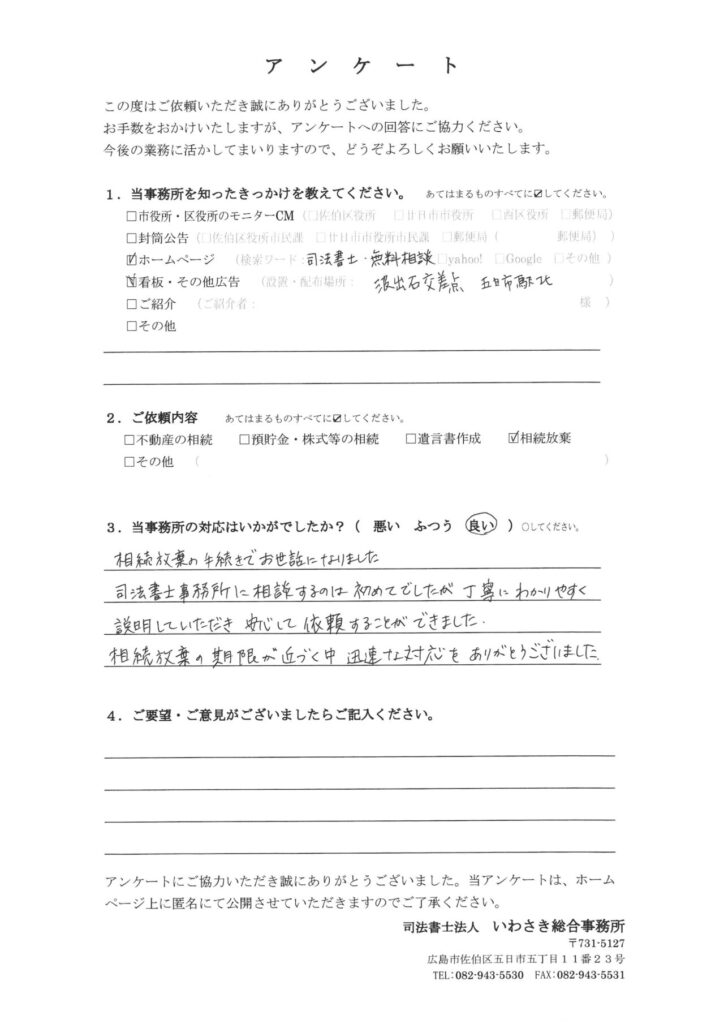 アンケート
この度はご依頼いただき誠にありがとうございました。
お手数をおかけいたしますが、アンケートへの回答にご協力ください。
今後の業務に活かしてまいりますので、どうぞよろしくお願いいたします。
1．当事務所を知ったきっかけを教えてください。 あてはまるものすべてに☑してください。
□市役所・区役所のモニターCM（□佐伯区役所 □廿日市市役所 □西区役所 □郵便局）
□封筒公告（□佐伯区役所市民課 □廿日市市役所市民課 □郵便局（ 郵便局））
☑ホームページ （検索ワード：司法書士・無料相談 □yahoo! □Google □その他）
☑看板・その他広告 （設置・配布場所： 出石交差点 五日市駅北 ）
□ご紹介 （ご紹介者： 様 ）
□その他
2．ご依頼内容 あてはまるものすべてに☑してください。
□不動産の相続 □預貯金・株式等の相続 □遺言書作成 ☑相続放棄
□その他 （ ）
3．当事務所の対応はいかがでしたか？（ 悪い ふつう 良い ）○してください。
相続放棄の手続きでお世話になりました
司法書士事務所に相談するのは初めてでしたが丁寧にわかりやすく
説明していただき安心して依頼することができました.
相続放棄の期限が近づく中迅速な対応をありがとうございました.
4．ご要望・ご意見がございましたらご記入ください。
アンケートにご協力いただき誠にありがとうございました。当アンケートは、ホーム
ページ上に匿名にて公開させていただきますのでご了承ください。
司法書士法人 いわさき総合事務所
〒731-5127
広島市佐伯区五日市五丁目１１番２３号
TEL:082-943-5530 FAX:082-943-5531